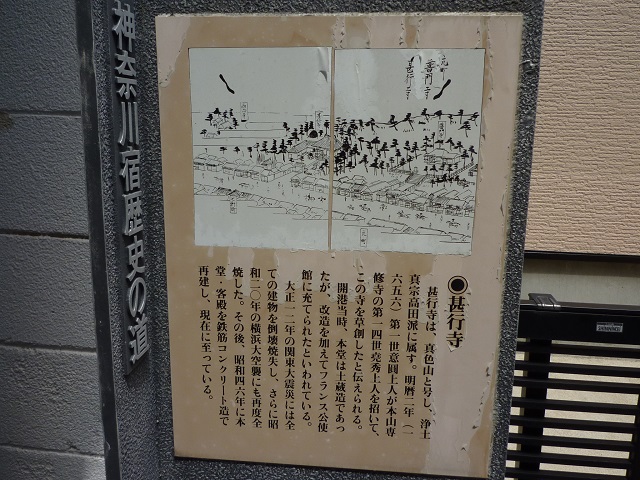 神奈川宿歴史の道
普門寺
甚行寺
◉甚行寺
甚行寺は、真色山と号し、浄土
真宗高田派に属す。明暦二年（一
六五六）第一世意圓上人が本山専
修寺の第一四世尭秀上人を招いて、
この寺を草創したと伝えられる。
開港当時、本堂は土蔵造であっ
たが、改造を加えてフランス公使
館に充てられたといわれている。
大正一二年の関東大震災には全
ての建物を倒壊焼失し、さらに昭
和二〇年の横浜大空襲にも再度全
焼した。その後、昭和四六年に本
堂・客殿を鉄筋コンクリート造で
再建し、現在に至っている。